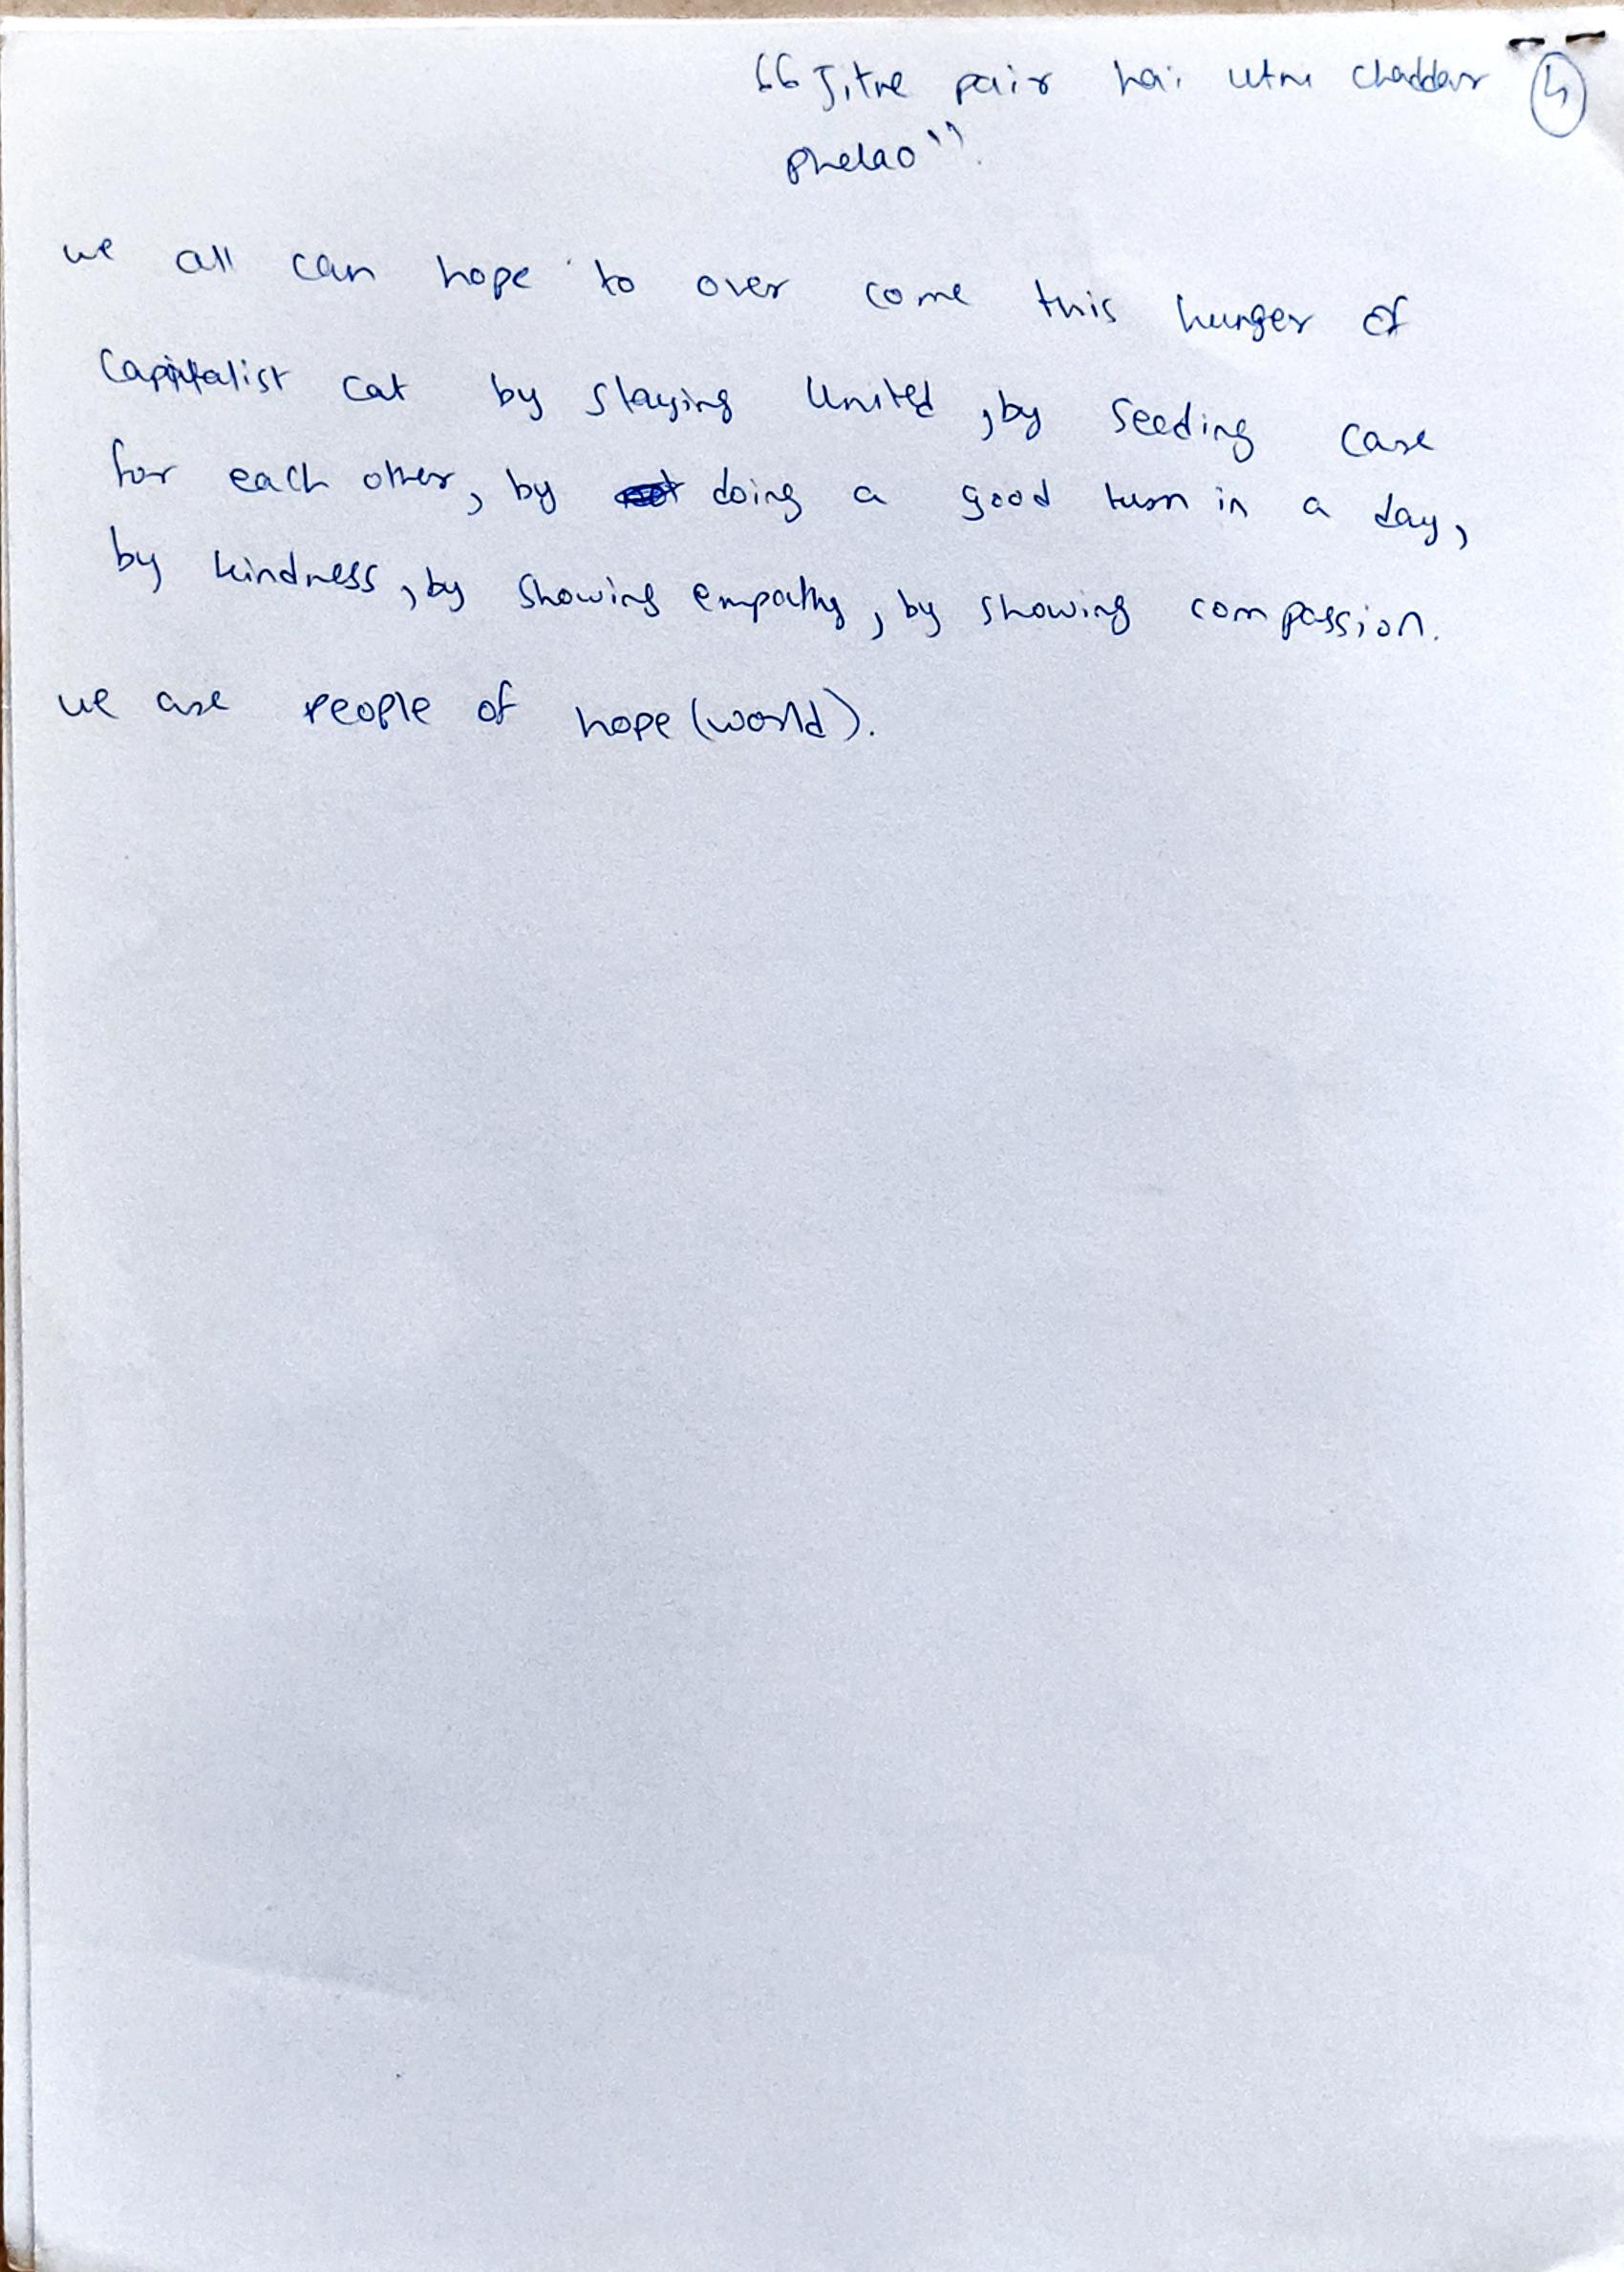 "Jitne pair hai utni chaddar
phelao".
4
we all can hope to over come this hunger of
Capitalist cat by staying United, by seeding care
for each other, by doing a good turn in a day,
by kindness, by showing empathy, by showing compassion.
we are people of hope (world).